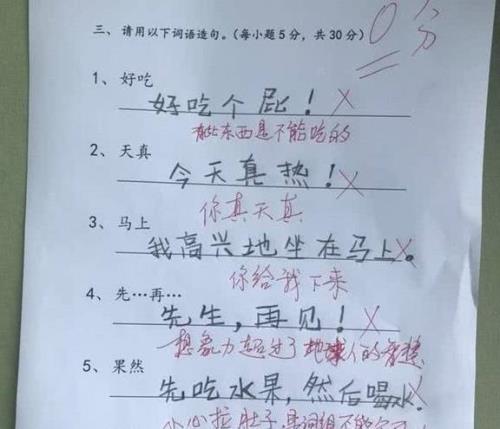 三、请用以下词语造句。（每小题5分，共30分）
0分
1、好吃
好吃个屁！
有些东西是不能吃的
2、天真
今天真热！
你真天真
3、马上
我高兴地坐在马上。
你给我下来
4、先……再……
先生，再见！
想象力超过了地球人的智慧
5、果然
先吃水果，然后喝水
小心拉肚子，是词组不能分